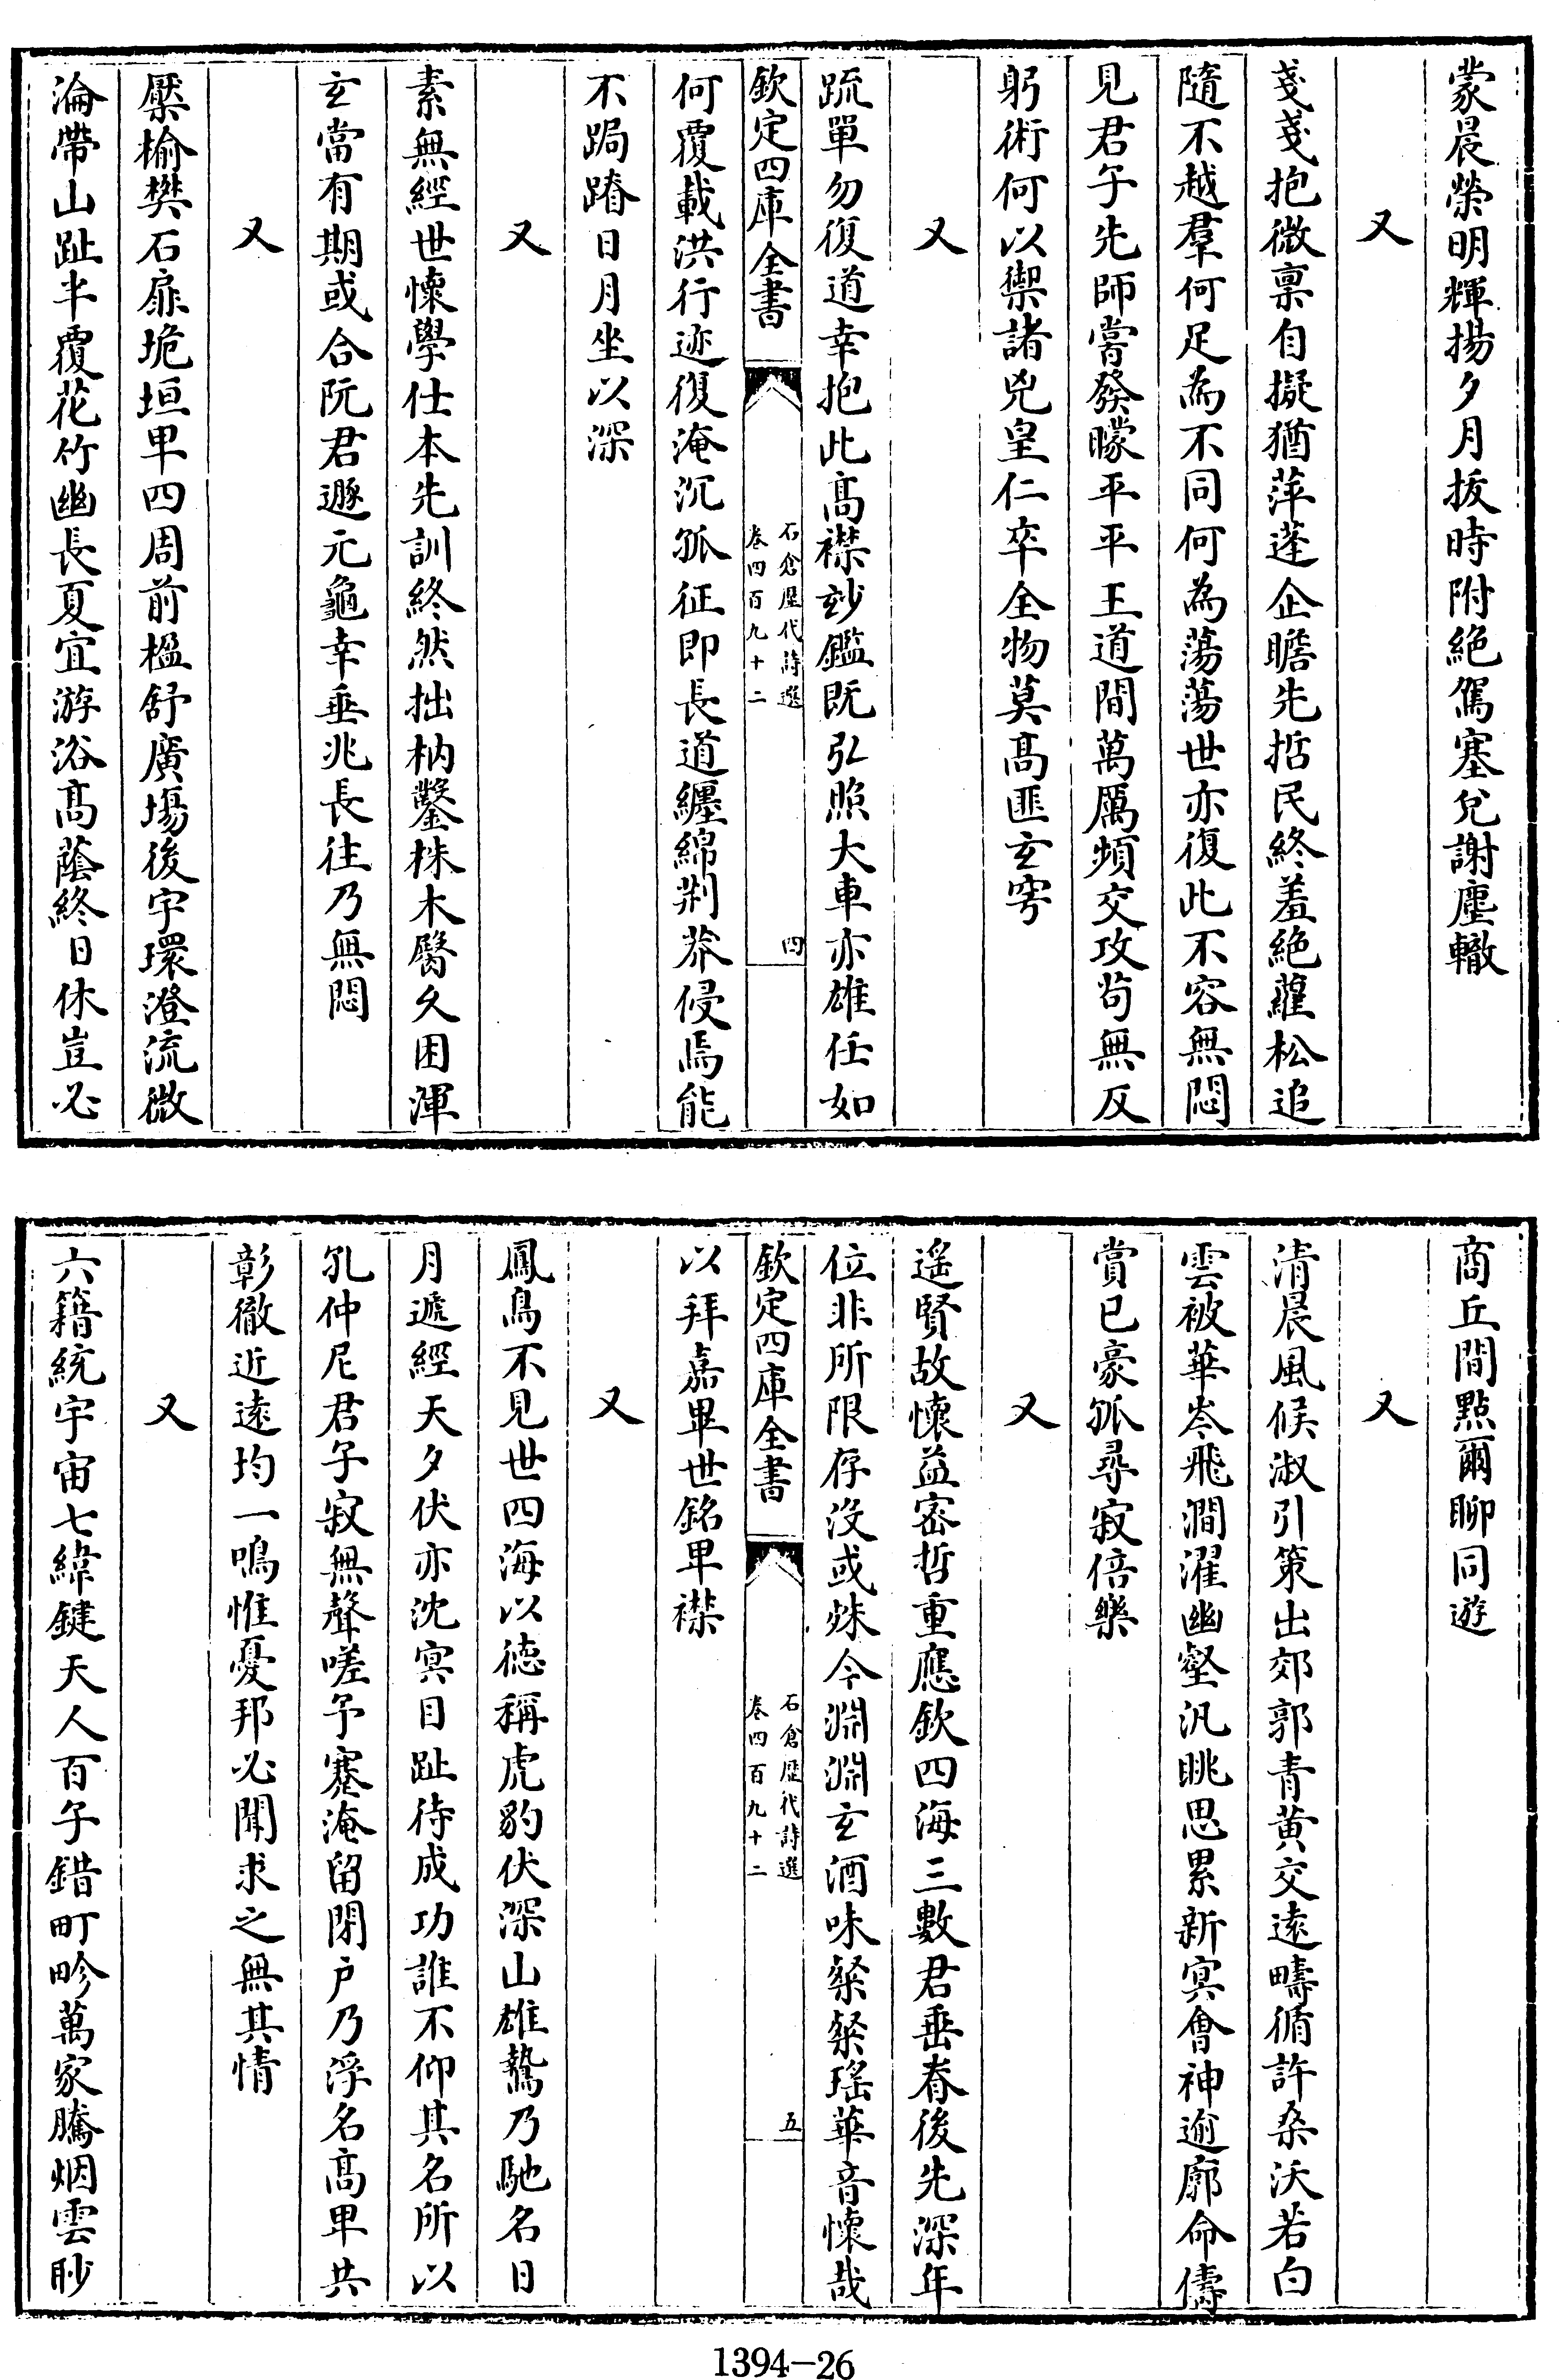 蒙晨榮明輝揚夕月拔時附絶駕塞兌謝塵轍
又
戔戔抱微稟自擬猶萍蓬企瞻先哲民終羞絶蘿松追
隨不越羣何足為不同何為蕩蕩世亦復此不容無悶
見君子先師嘗發矇平平王道間萬厲頻交攻茍無反
躬術何以禦諸兇皇仁卒全物莫髙匪玄穹
又
疏單勿復道幸抱此髙襟玅鑑既弘照大車亦雄任如
欽定四庫全書
石倉歴代詩選
卷四百九十二
四
何覆載洪行迹復淹沉孤征即長道纒綿荆莽侵焉能
不跼蹐日月坐以深
又
素無經世懐學仕本先訓終然拙枘鑿株木臀久困渾
玄當有期或合阮君遯元龜幸垂兆長往乃無悶
又
壓榆樊石扉垝垣卑四周前楹舒廣塲後宇環澄流微
淪帶山趾半覆花竹幽長夏宜游浴髙蔭終日休豈必
商丘間㸃爾聊同遊
又
清晨風候淑引策出郊郭青黄交逺疇循許桑沃若白
雲被華岑飛澗濯幽壑汎眺思累新冥會神逾廓命儔
賞已豪孤尋寂倍樂
又
遥賢故懐益宻哲重應欽四海三數君垂春後先深年
位非所限存沒或殊今淵淵玄酒味粲粲瑤華音懐哉
欽定四庫全書
石倉歴代詩選
卷四百九十二
五
以拜嘉畢世銘卑襟
又
鳳鳥不見世四海以徳稱虎豹伏深山雄鷙乃馳名日
月遞經天夕伏亦沈冥目趾待成功誰不仰其名所以
孔仲尼君子寂無聲嗟予蹇淹留閉户乃浮名髙卑共
彰徹近逺均一鳴惟憂邦必聞求之無其情
又
六籍統宇宙七緯鍵天人百子錯町畛萬家騰烟雲眇
1394-26